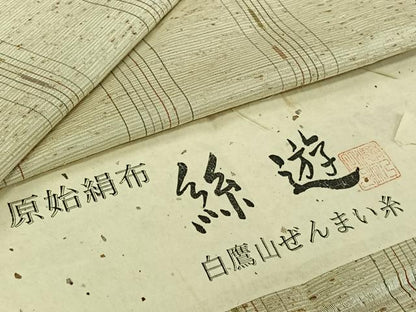 原始絹布
絲遊
白鷹山ぜんまい糸